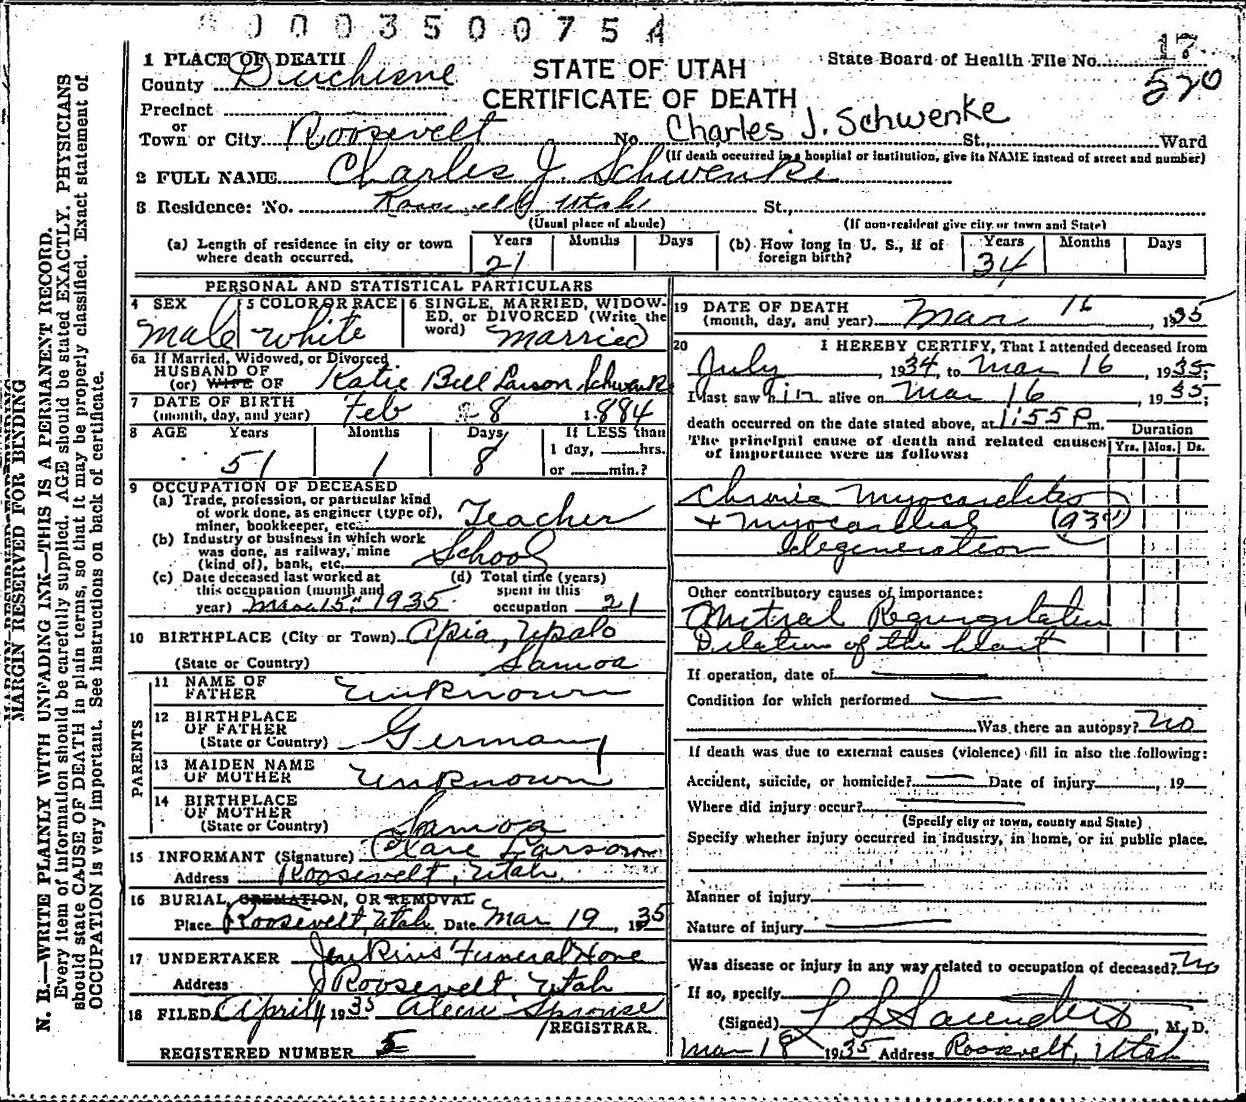 003500754
1 PLACE OF DEATH
County Duchesne
STATE OF UTAH
CERTIFICATE OF DEATH
State Board of Health File No. 17
520
Precinct
or
Town or City Roosevelt No. Charles J. Schwenke St., Ward
(If death occurred in a hospital or institution, give its NAME instead of street and number)
2 FULL NAME Charles J. Schwenke
3 Residence: No. Roosevelt, Utah St.,
(Usual place of abode) (If non-resident give city or town and State)
(a) Length of residence in city or town where death occurred. Years 21 Months Days
(b) How long in U. S., if of foreign birth? Years 34 Months Days
PERSONAL AND STATISTICAL PARTICULARS
4 SEX Male
5 COLOR OR RACE white
6 SINGLE, MARRIED, WIDOWED, or DIVORCED (Write the word) married
6a If Married, Widowed, or Divorced
HUSBAND OF
(or) WIFE OF Katie Bell Larson Schwenke
7 DATE OF BIRTH
(month, day, and year) Feb 8 1884
8 AGE Years 51 Months 1 Days 8 If LESS than
1 day, hrs.
or min.?
9 OCCUPATION OF DECEASED
(a) Trade, profession, or particular kind
of work done, as engineer (type of),
miner, bookkeeper, etc. Teacher
(b) Industry or business in which work
was done, as railway, mine
(kind of), bank, etc. School
(c) Date deceased last worked at
this occupation (month and
year) Mar 15, 1935
(d) Total time (years)
spent in this
occupation 21
10 BIRTHPLACE (City or Town) Apia, Upalo
(State or Country) Samoa
PARENTS
11 NAME OF
FATHER Unknown
12 BIRTHPLACE
OF FATHER
(State or Country) Germany
13 MAIDEN NAME
OF MOTHER Unknown
14 BIRTHPLACE
OF MOTHER
(State or Country) Samoa
15 INFORMANT (Signature) Clare Larson
Address Roosevelt, Utah
16 BURIAL, CREMATION, OR REMOVAL
Place Roosevelt, Utah Date Mar 19, 1935
17 UNDERTAKER Jenkins Funeral Home
Address Roosevelt, Utah
18 FILED April 4 1935 Aleen Sprouse
REGISTRAR.
REGISTERED NUMBER 5
19 DATE OF DEATH
(month, day, and year) Mar 16, 1935
20 I HEREBY CERTIFY, That I attended deceased from
July, 1934, to Mar 16, 1935;
I last saw him alive on Mar 16, 1935;
death occurred on the date stated above, at 1:55 P m.
The principal cause of death and related causes
of importance were as follows:
Duration
Yrs. Mos. Ds.
Chronic Myocarditis
+ Myocardial
degeneration
Other contributory causes of importance:
Mitral Regurgitation
Dilation of the heart
If operation, date of
Condition for which performed
Was there an autopsy? No
If death was due to external causes (violence) fill in also the following:
Accident, suicide, or homicide? Date of injury, 19
Where did injury occur?
(Specify city or town, county and State)
Specify whether injury occurred in industry, in home, or in public place.
Manner of injury
Nature of injury
Was disease or injury in any way related to occupation of deceased? No
If so, specify
(Signed) L S Saunders, M. D.
Mar 18 1935 Address Roosevelt, Utah
MARGIN RESERVED FOR BINDING
N. B.—WRITE PLAINLY WITH UNFADING INK—THIS IS A PERMANENT RECORD.
Every item of information should be carefully supplied. AGE should be stated EXACTLY. PHYSICIANS
should state CAUSE OF DEATH in plain terms, so that it may be properly classified. Exact statement of
OCCUPATION is very important. See instructions on back of certificate.